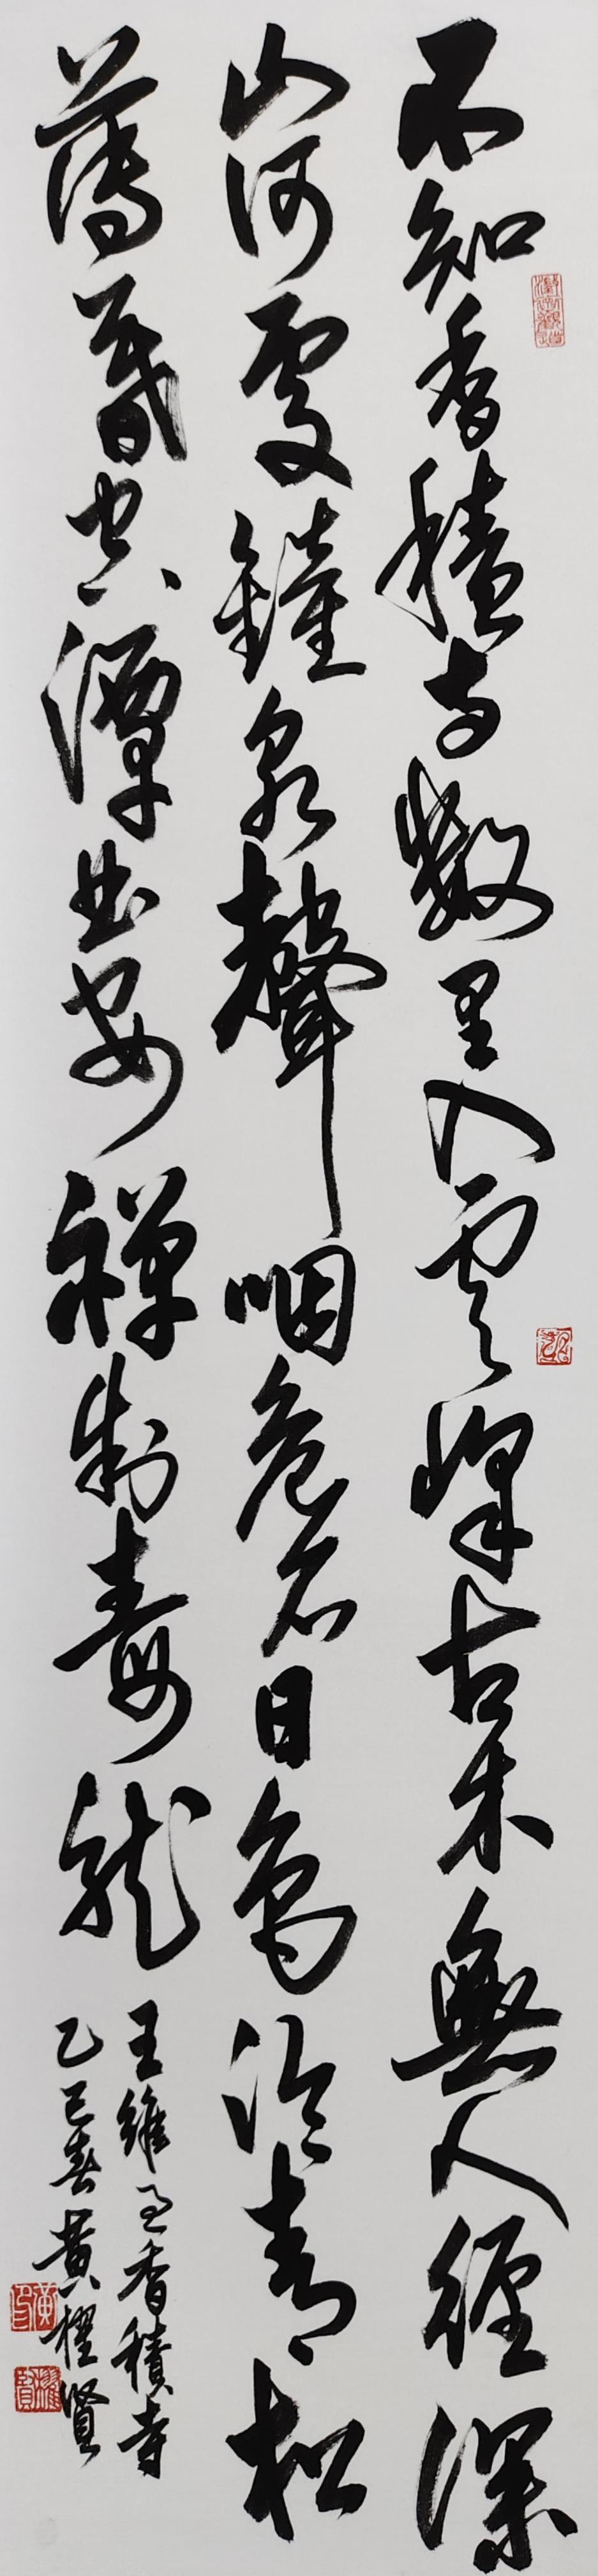 不知香積寺數里入雲峰古木無人徑深
山何處鐘泉聲咽危石日色冷青松
薄暮空潭曲安禪制毒龍
王維過香積寺
乙巳春黃櫂賢